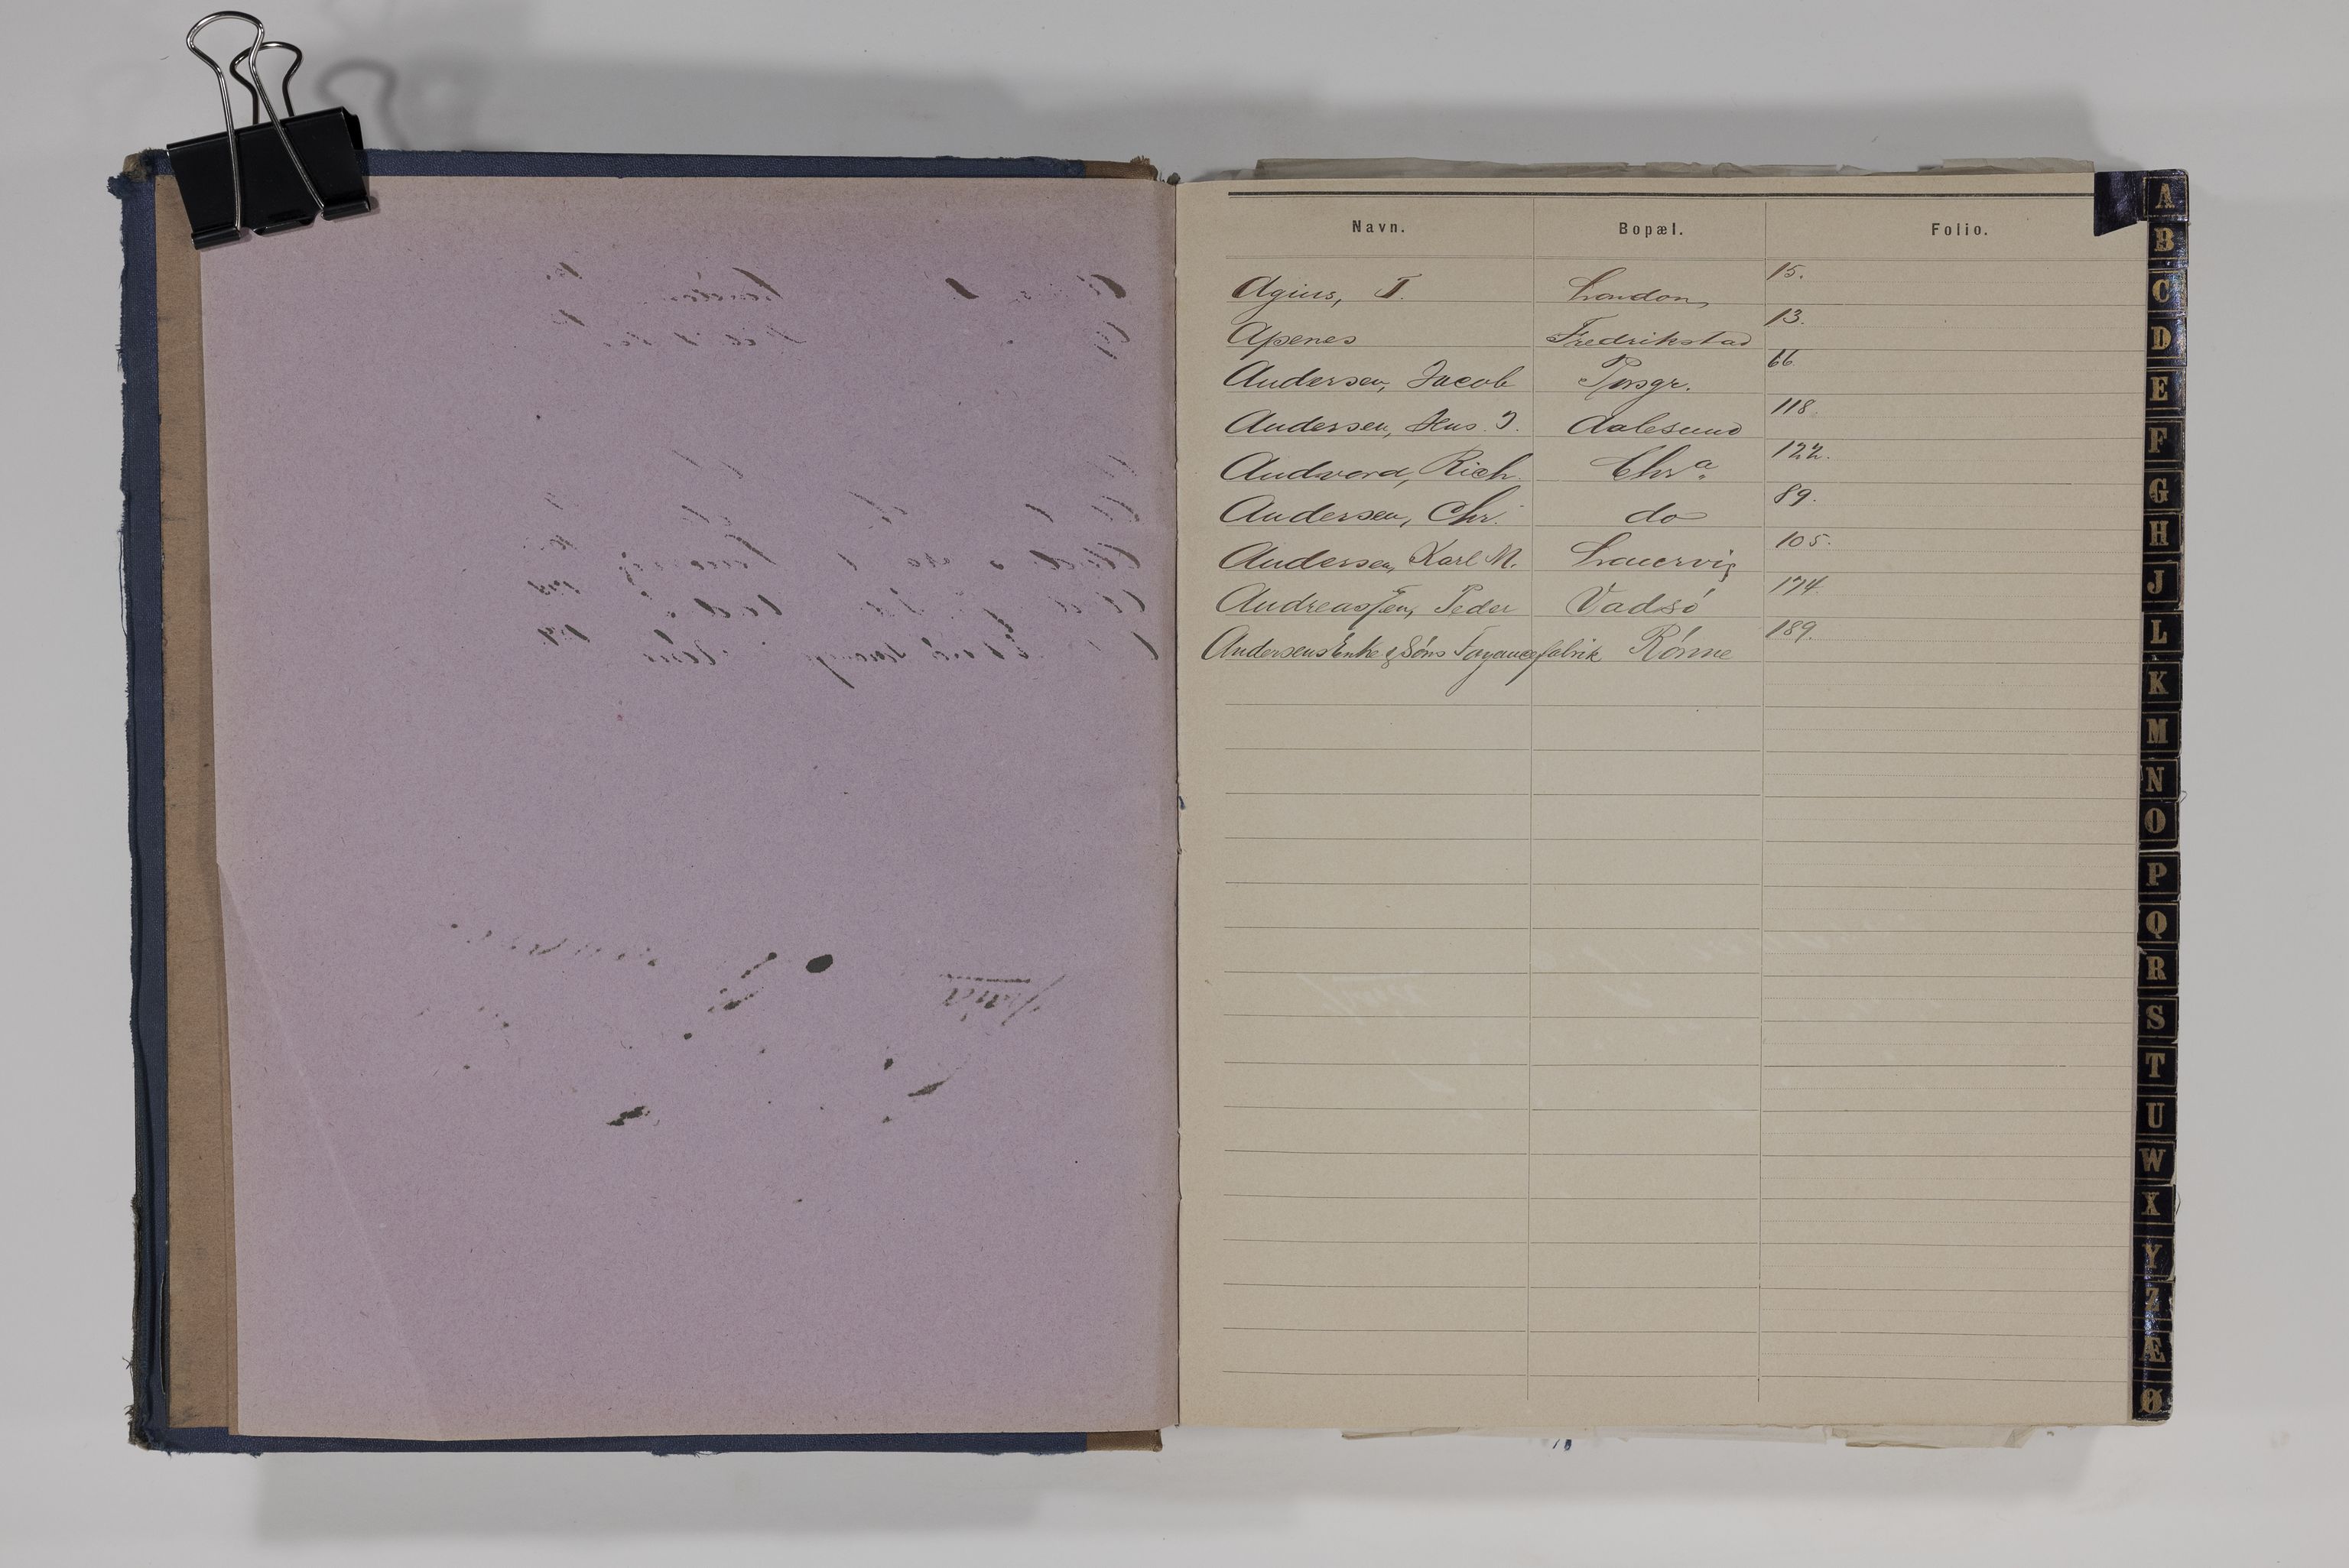 Navn. Bopæl. Folio.
Agius, T. London 15.
Apenes Fredrikstad 13.
Andersen, Jacob Porsgr. 66
Andersen, Hns. J. Aalesund 118.
Andvord, Rich. Chr.a 122.
Andersen, Chr. do 89.
Andersen, Karl M. Laurvig 105.
Andreassen, Peder Vadsö 174.
Andersens Enke & Søns Fayancefabrik Rönne 189.
A
B
C
D
E
F
G
H
J
L
K
M
N
O
P
Q
R
S
T
U
W
X
Y
Z
Æ
Ø